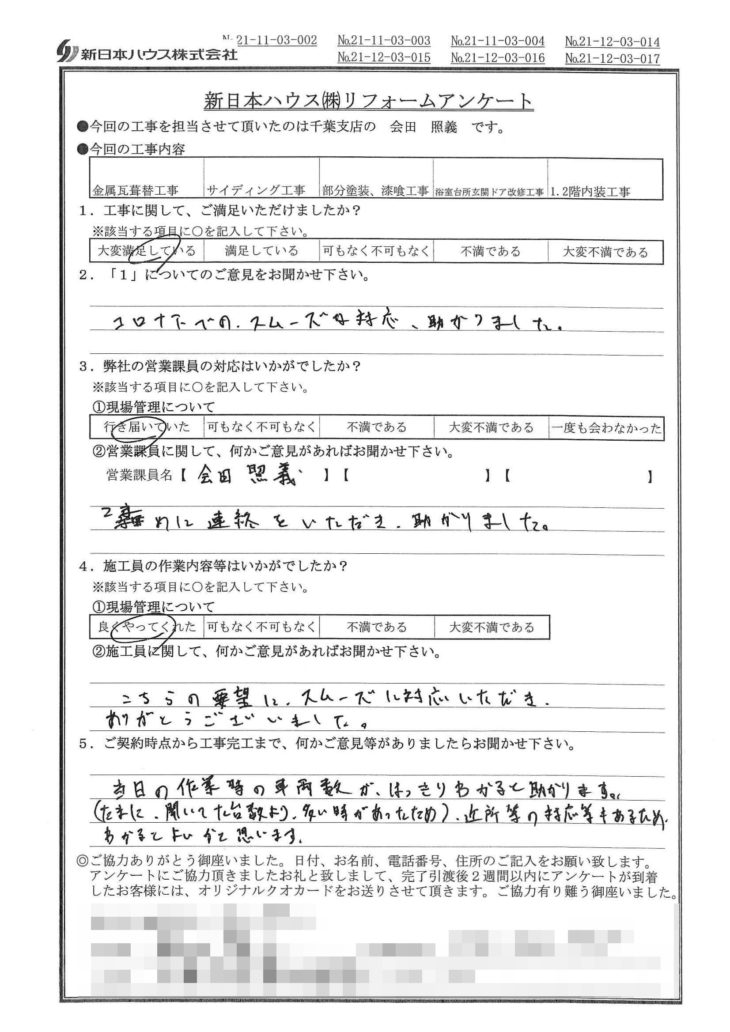 新日本ハウス株式会社
№21-11-03-002 №21-11-03-003 №21-11-03-004 №21-12-03-014
№21-12-03-015 №21-12-03-016 №21-12-03-017
新日本ハウス㈱リフォームアンケート
●今回の工事を担当させて頂いたのは千葉支店の 会田 照義 です。
●今回の工事内容
金属瓦葺替工事 サイディング工事 部分塗装、漆喰工事 浴室台所玄関ドア改修工事 1.2階内装工事
1．工事に関して、ご満足いただけましたか？
※該当する項目に○を記入して下さい。
大変満足している 満足している 可もなく不可もなく 不満である 大変不満である
2．「1」についてのご意見をお聞かせ下さい。
コロナ下での、スムーズな対応、助かりました。
3．弊社の営業課員の対応はいかがでしたか？
※該当する項目に○を記入して下さい。
①現場管理について
行き届いていた 可もなく不可もなく 不満である 大変不満である 一度も会わなかった
②営業課員に関して、何かご意見があればお聞かせ下さい。
営業課員名【 会田 照義 】【 】【 】
めに連絡をいただき、助かりました。
4．施工員の作業内容等はいかがでしたか？
※該当する項目に○を記入して下さい。
①現場管理について
良くやってくれた 可もなく不可もなく 不満である 大変不満である
②施工員に関して、何かご意見があればお聞かせ下さい。
こちらの要望に、スムーズに対応いただき、
ありがとうございました。
5．ご契約時点から工事完工まで、何かご意見等がありましたらお聞かせ下さい。
当日の作業時の車両数が、はっきりわかると助かります。
(たまに、聞いてた台数より、多い時があったため)、近所等の対応等もあるため、
わかるとよいかと思います。
◎ご協力ありがとう御座いました。日付、お名前、電話番号、住所のご記入をお願い致します。
アンケートにご協力頂きましたお礼と致しまして、完了引渡後２週間以内にアンケートが到着
したお客様には、オリジナルクオカードをお送りさせて頂きます。ご協力有り難う御座いました。